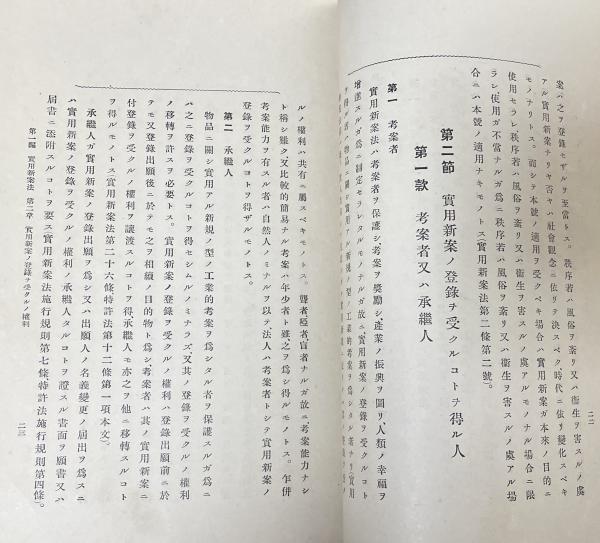 案ハ之ヲ登録セザルヲ至當トス。秩序若ハ風俗ヲ紊リ又ハ衞生ヲ害スルノ虞
アル實用新案ナリヤ否ヤハ社會觀念ニ依リテ決スベク時代ニ依リ變化スベキ
モノナリトス。而シテ本號ノ適用ヲ受クベキ場合ハ實用新案ガ本來ノ目的ニ
使用セラレ秩序若ハ風俗ヲ紊リ又ハ衞生ヲ害スルノ虞アルモノナル場合ニ限
ラレ使用ガ不當ナルガ爲ニ秩序若ハ風俗ヲ紊リ又ハ衞生ヲ害スルノ虞アル場
合ニハ本號ノ適用ナキモノトス(實用新案法第二條第二號)。
第二節 實用新案ノ登録ヲ受クルコトヲ得ル人
第一款 考案者又ハ承繼人
第一 考案者
實用新案法ハ考案者ヲ保護シ、考案ヲ奬勵シ、產業ノ振興ヲ圖リ人類ノ幸福ヲ
增進スルガ爲ニ制定セラレタルモノナルガ故ニ、實用新案ノ登録ヲ受クルコト
ヲ得ル者ハ物品ニ關シ實用アル新規ノ型ノ工業的考案ヲ爲シタル
二二
ルノ權利ハ共有ニ屬スベキモノトス。聾者啞者、盲者ナルガ故ニ、考案能力ナシ
ト稱シ難ク又比較的簡易ナル考案ハ年少者ト雖、之ヲ爲シ得ルモノトス。乍併
考案能力ヲ有スル者ハ自然人ノミナルヲ以テ、法人ハ考案者トシテ實用新案ノ
登録ヲ受クルコトヲ得ザルモノトス。
第二 承繼人
物品ニ關シ實用アル新規ノ型ノ工業的考案ヲ爲シタル者ヲ保護スルガ爲ニ
ハ之ニ登録ヲ受クルコトヲ得セシムルノミナラズ、又其ノ登録ヲ受クルノ權利
ノ移轉ヲ許スヲ必要トス。實用新案ノ登録ヲ受クルノ權利ハ登録出願前ニ於
テモ又登録出願後ニ於テモ之ヲ相續ノ目的物ト爲シ考案者ハ其ノ實用新案ニ
付登録ヲ受クルノ權利ヲ讓渡スルコトヲ得、承繼人モ亦之ヲ他ニ移轉スルコト
ヲ得ルモノトス(實用新案法第二十六條特許法第十二條第一項本文)。
承繼人ガ實用新案ノ登録出願ヲ爲シ又ハ出願人ノ名義變更ノ屆出ヲ爲スニ
ハ實用新案ノ登録ヲ受クルノ權利ノ承繼人タルコトヲ證スル書面ヲ願書又ハ
屆書ニ添附スルコトヲ要ス(實用新案法施行規則第七條特許法施行規則第四條)。
第一編 實用新案法 第二章 實用新案ノ登録ヲ受クルノ權利
二三